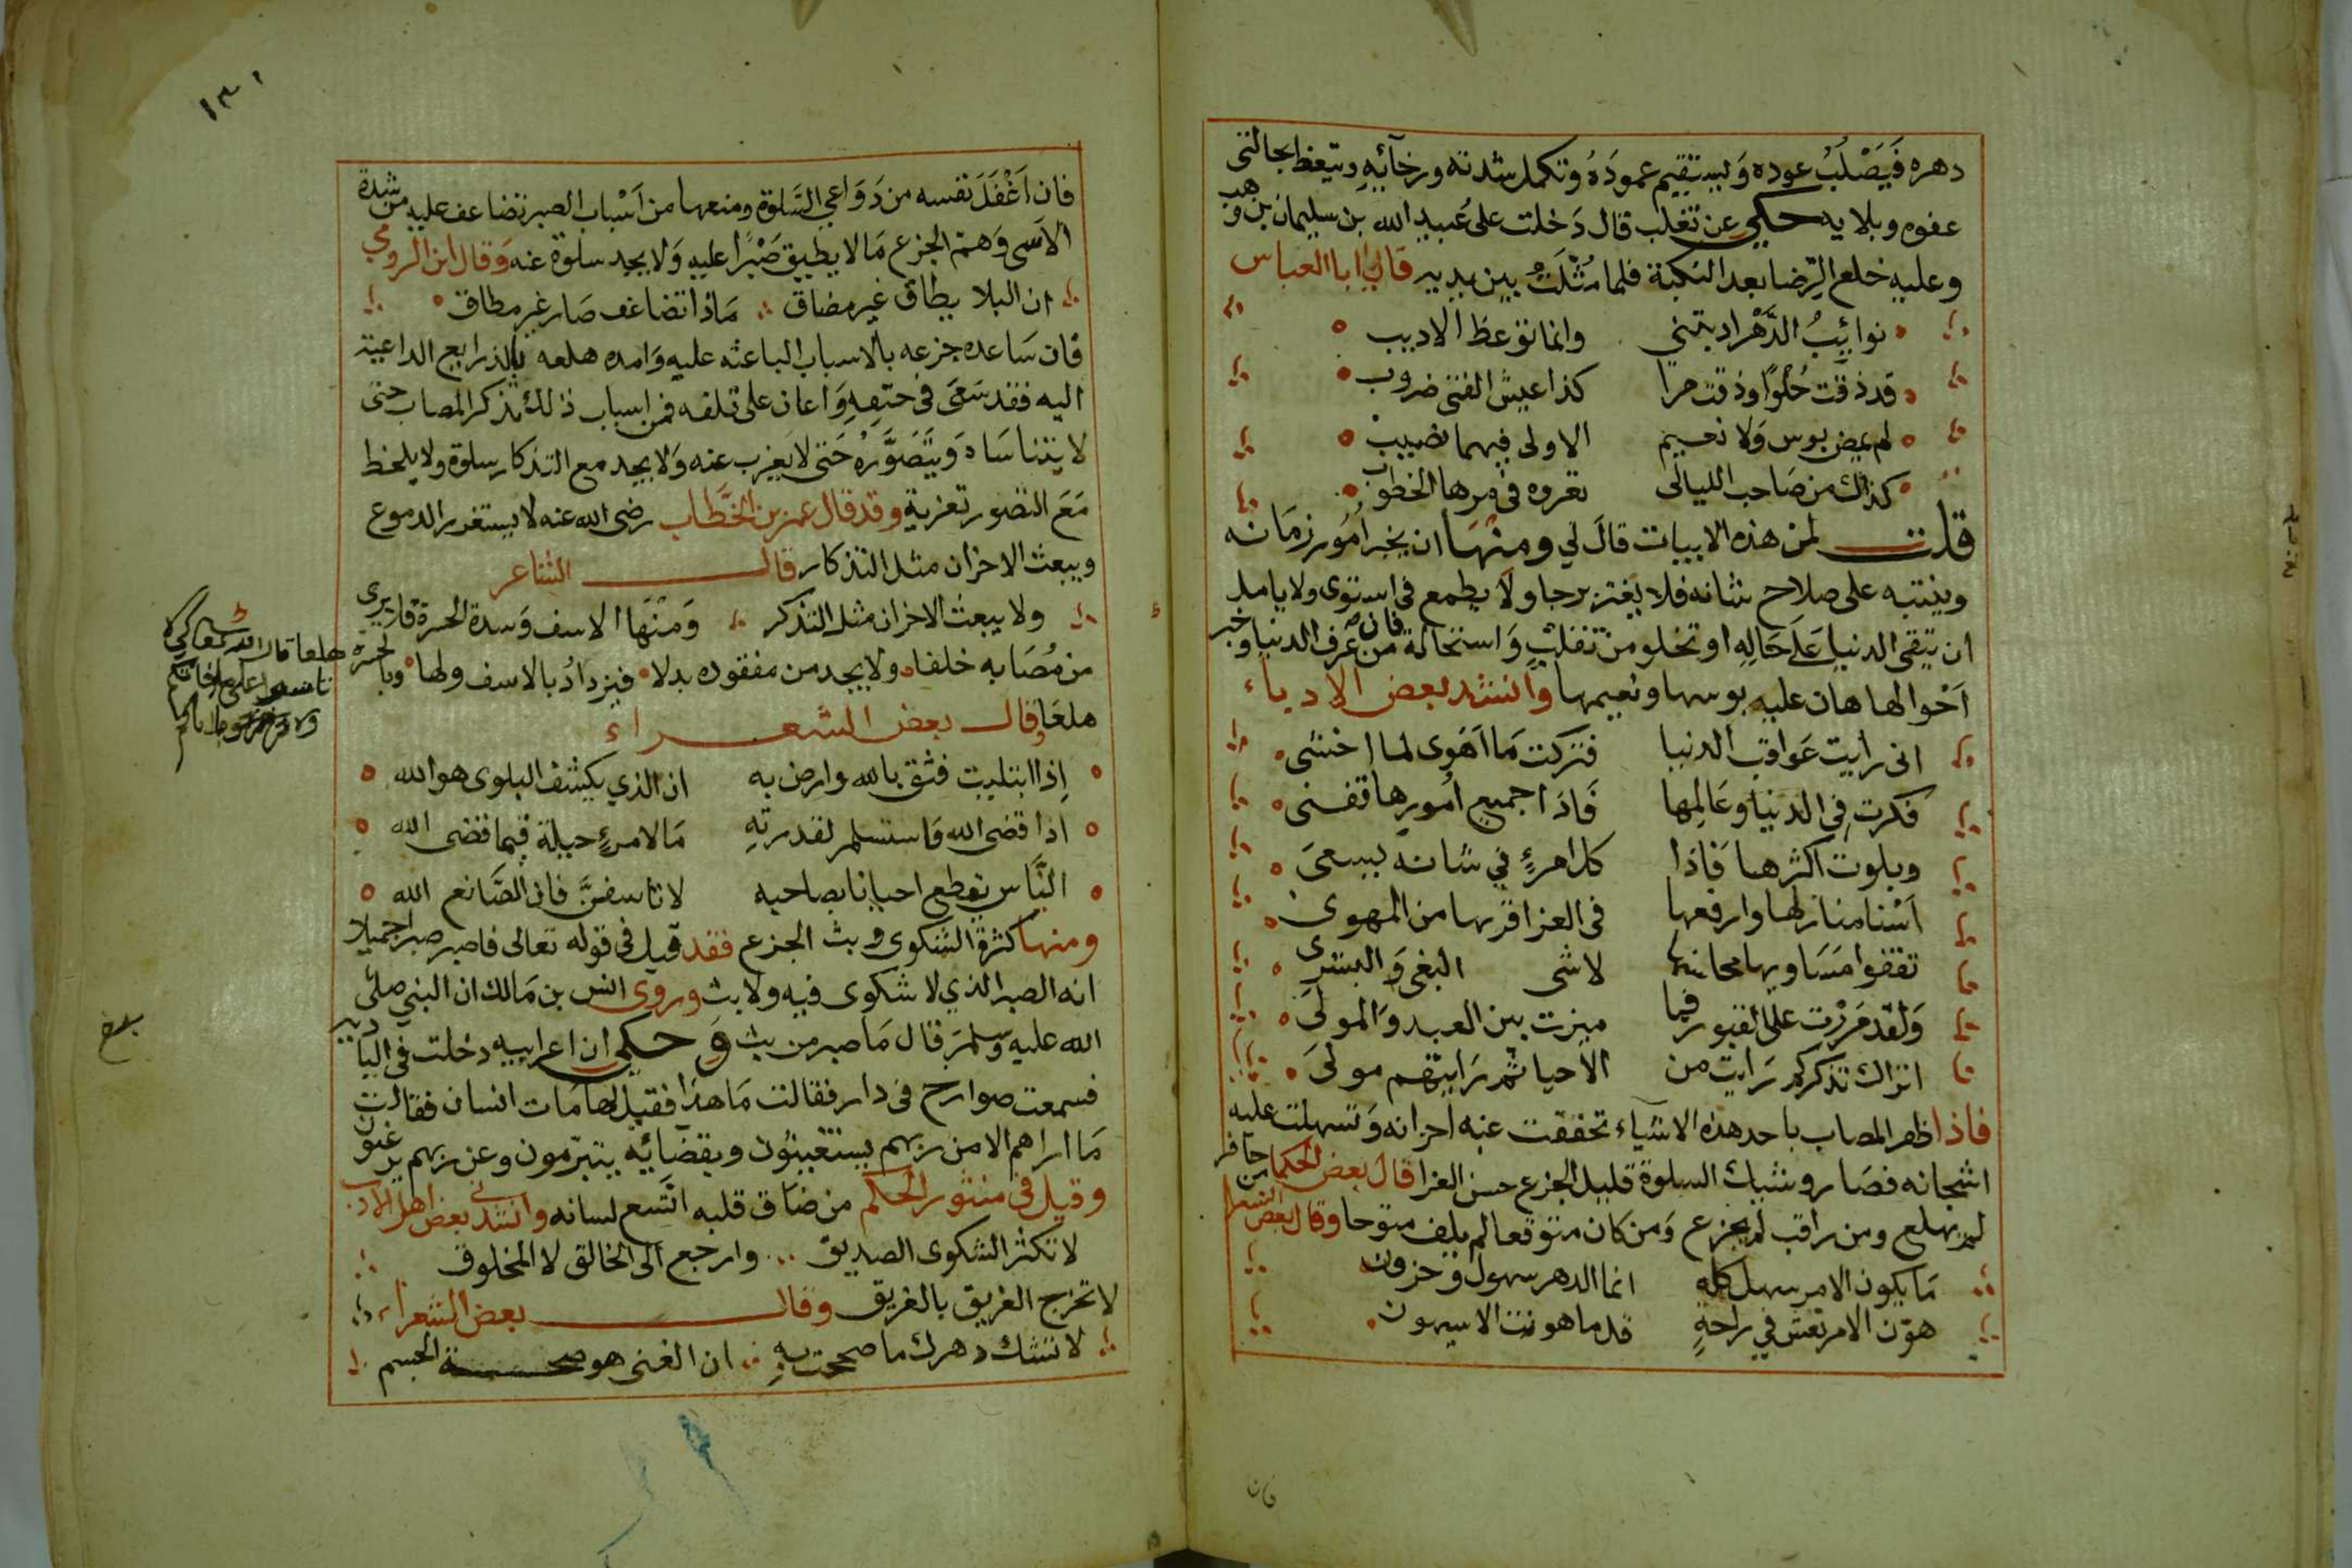 دهره فَيَصْلُبُ عوده وَيستقيم عمودَهُ وتكمل شدته ورخآئِهِ ويتعظ بحالتى
عفوه وبلايه حكي عن ثعلب قال دَخلت على عُبيد الله بن سليمان بن وهب
وعليه خلع الرِّضا بعد النكبة فلما مَثُلَتُ بين يديه قال لي ابا العباس
نوائِبُ الدَّهْر ادبتني وانما توعظ الاديب
قد ذقت حُلوًا وذقت مرا كذا عيش الفتى ضروب
لم يمض بوس وَلا نعيم الاولى فيهما نصيب
كذاك من صَاحب الليالى تغروه في مرها الخطوب
قلت لمن هذه الابيات قالَ لي ومنها ان يخبر اُمُور زمَانه
وينتبه على صلاح شانه فلا يغتر برجا ولا يطمع في استوى ولا يامل
ان تبقى الدنيا عَلَى حَالِهِ او تخلو من تقلبٍ وَاستحالة فان من عَرف الدنيا وخبر
اَحْوالها هان عليه بوسها ونعيمها وانشد بعض الادباء
انى رايت عَواقب الدنيا فتركت مَا اَهَوى لما اخشى
فكرت في الدنيا وعَالِمها فَاذا جميع اُمُورِها تفنى
وبلوت اكثرها فَاذا كل امرءٍ في شانه يسعَى
اَسْنا منازلها وارفعها فى العز اقربها من المهوى
تقفوا مَسَاويها محاسنها لاشى البغى وَالبشرى
وَلقد مَرَرْت على القبور فما ميزت بين العبد وَالمولى
اتراك تذكر كم رَايت من الاحيا ثم رَايتهم موتى
فاذا ظفر المصاب باحد هذه الاشياء تخففت عنه احزانه وَتسهلت عليه
اشجانه فصَار وشيك السلوة قليل الجزع حسن العزا قالَ بعض الحكما من حاذر
لم يهلع ومن راقب لم يجزع وَمن كان متوقعا لم يلف متوجعا وقال بعض الشعرا
مَا يكون الامر سهل كله انما الدهر سهول وَحزون
هوّن الامر تعش في راحةٍ قل ما هونت الا سيهون
فان
١٣١
فان اَغْفَلَ نفسه من دَوَاعي السَّلوة ومنعها من اَسْباب الصبر تضاعف عليه من شدة
الاَسى وَهم الجزع مَا لا يطيق صَبْرًا عليه وَلا يجد سلوة عنه وَقال ابن الرومي
ان البلا يطاق غير مضاق مَاذا تضاعف صَار غير مطاق
فان سَاعده جزعه بالاسباب الباعثه عليه وَامده هلعه بالذرايع الداعية
اليه فقد سَعَى فى حتفهِ وَاعان على تلفه فمن اسباب ذلك تذكر المصاب حتى
لا يتناسَاه وَيتَصَوَّرهُ حَتى لا يَعْزب عنه وَلا يجد مع التذكار سلوة ولا يلحظ
مَعَ التصور تعزية وقد قال عمر بن الخَطَّاب رضى الله عنه لا يستغزر الدموع
ويبعث الاحزان مثل التذكار قال الشاعر
ولا يبعث الاحزان مثل التذكر وَمنْهَا الاسف وَشدة الحسرة فلا يرى
من مُصَابه خلفا ولا يجد من مفقوده بدلا فيزدادُ بالاسف ولها وبالحسرة
هلعا قال الله تعالى لكي لا
تاسوا على ما فاتكم
ولا تفرحوا بما اتاكم
هلعًا وقال بعض الشعراء
اِذا ابتليت فثق بالله وارض به ان الذي يكشف البلوى هو الله
اذا قضى الله فَاستسلم لقدرتهِ مَا لامرءٍ حيلة فيما قضى الله
النَّاس يقطع احيانا بصاحبه لا تاسفنَّ فان الصَّانع الله
ومنها كثرة الشكوى وبث الجزع فقد قيل فى قوله تعالى فاصبر صبرا جميلا
انه الصبر الذي لا شكوى فيه ولا بث وروى انس بن مَالك ان النبي صلى
الله عليه وَسلمَ قال مَا صبر من بث وَ حكي ان اعرابيه دخلت في البادية
بلغ
فسمعت صوارح فى دار فقالت مَا هذا فقيل لها مَات انسان فقالت
مَا اراهم الا من ربهم يستغيثوُن وبقضآئِه يتبرّمون وعن ربهم يرغبون
وقيل في منثور الحكم من ضاق قلبه اتَّسع لسانه وانشدنى بعض اهل الادب
لا تكثر الشكوى الصديق وارجع الى الخالق لا المخلوق
لا تخرج الغريق بالغريق وقال بعض الشعراء
لا تشك دهرك ما صححت بهِ ان الغنى هو صحة الجسم